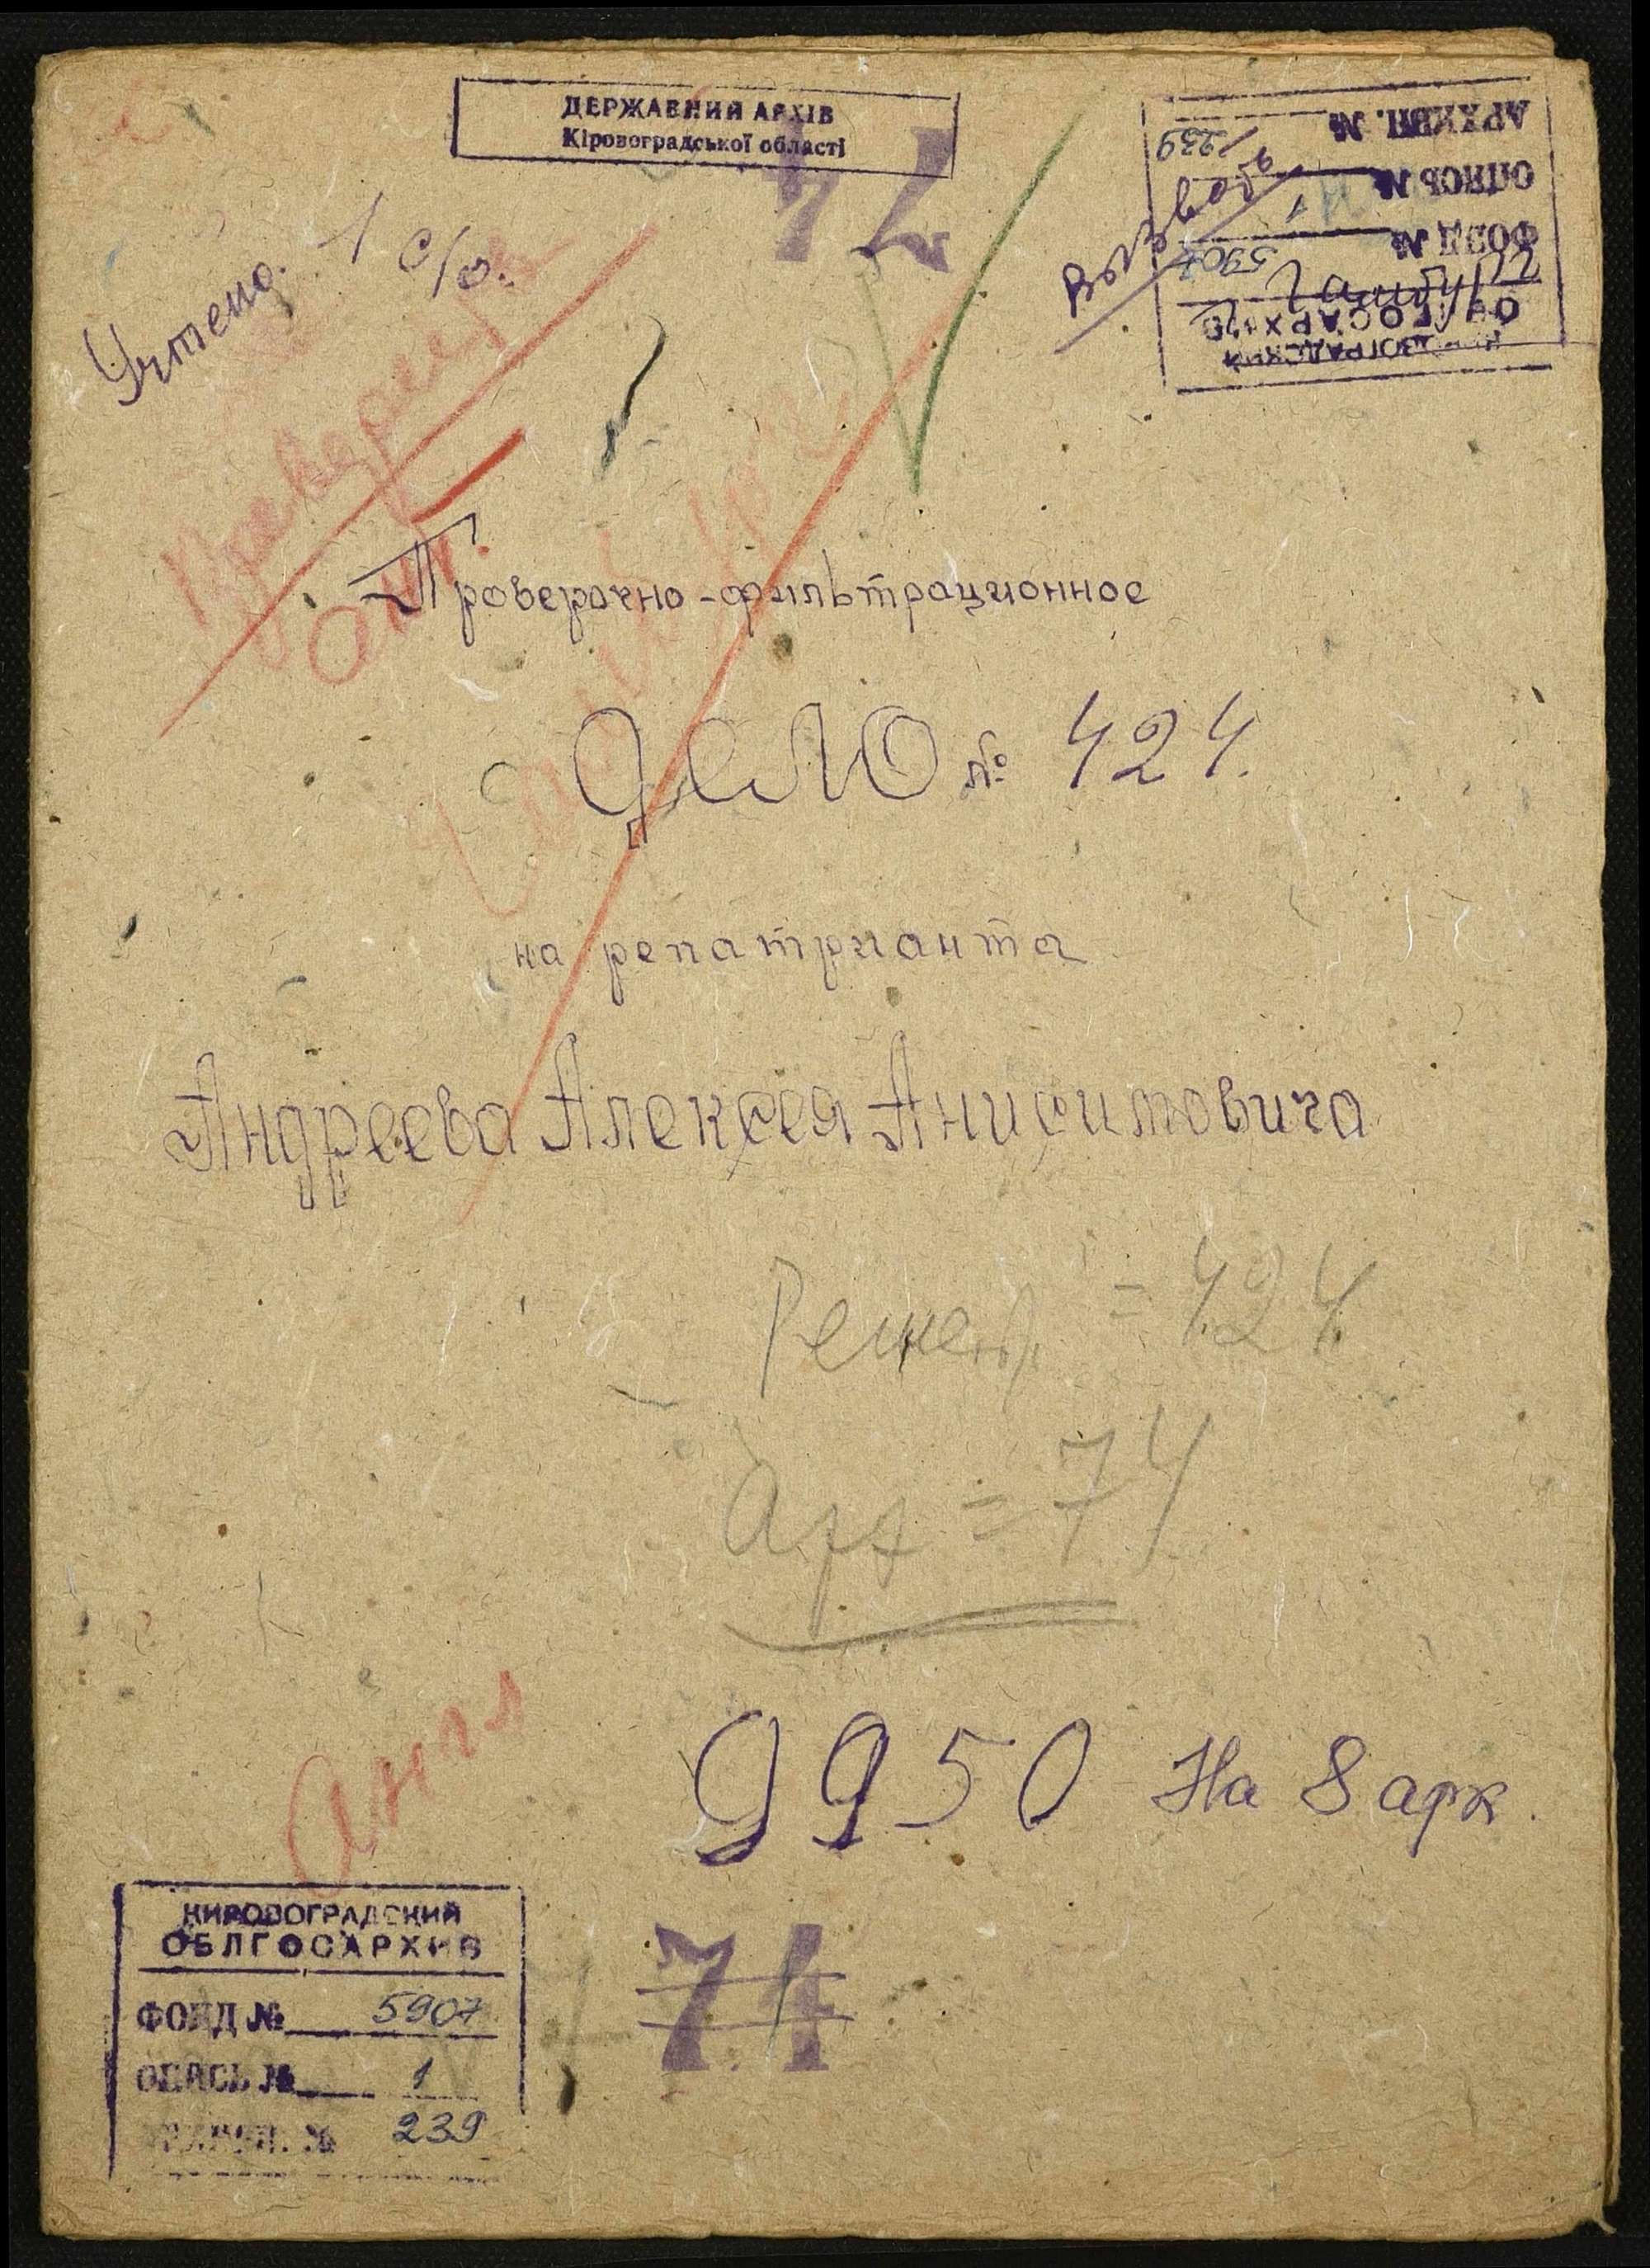 ДЕРЖАВНИЙ АРХІВ
Кіровоградської області
74
АРХИВН. № 239
ОПИСЬ № 1
ФОНД № 5907
ОБЛГОСАРХИВ
Учтено. 1 с/о.
Проверочно-фильтрационное
дело № 424.
на репатрианта
Андреева Алексея Анисимовича
= 424
Арх = 74
Англ
9950 На 8 арк.
КИРОВОГРАДСКИЙ
ОБЛГОСАРХИВ
ФОНД № 5907
ОПИСЬ № 1
АРХИВН. № 239
74